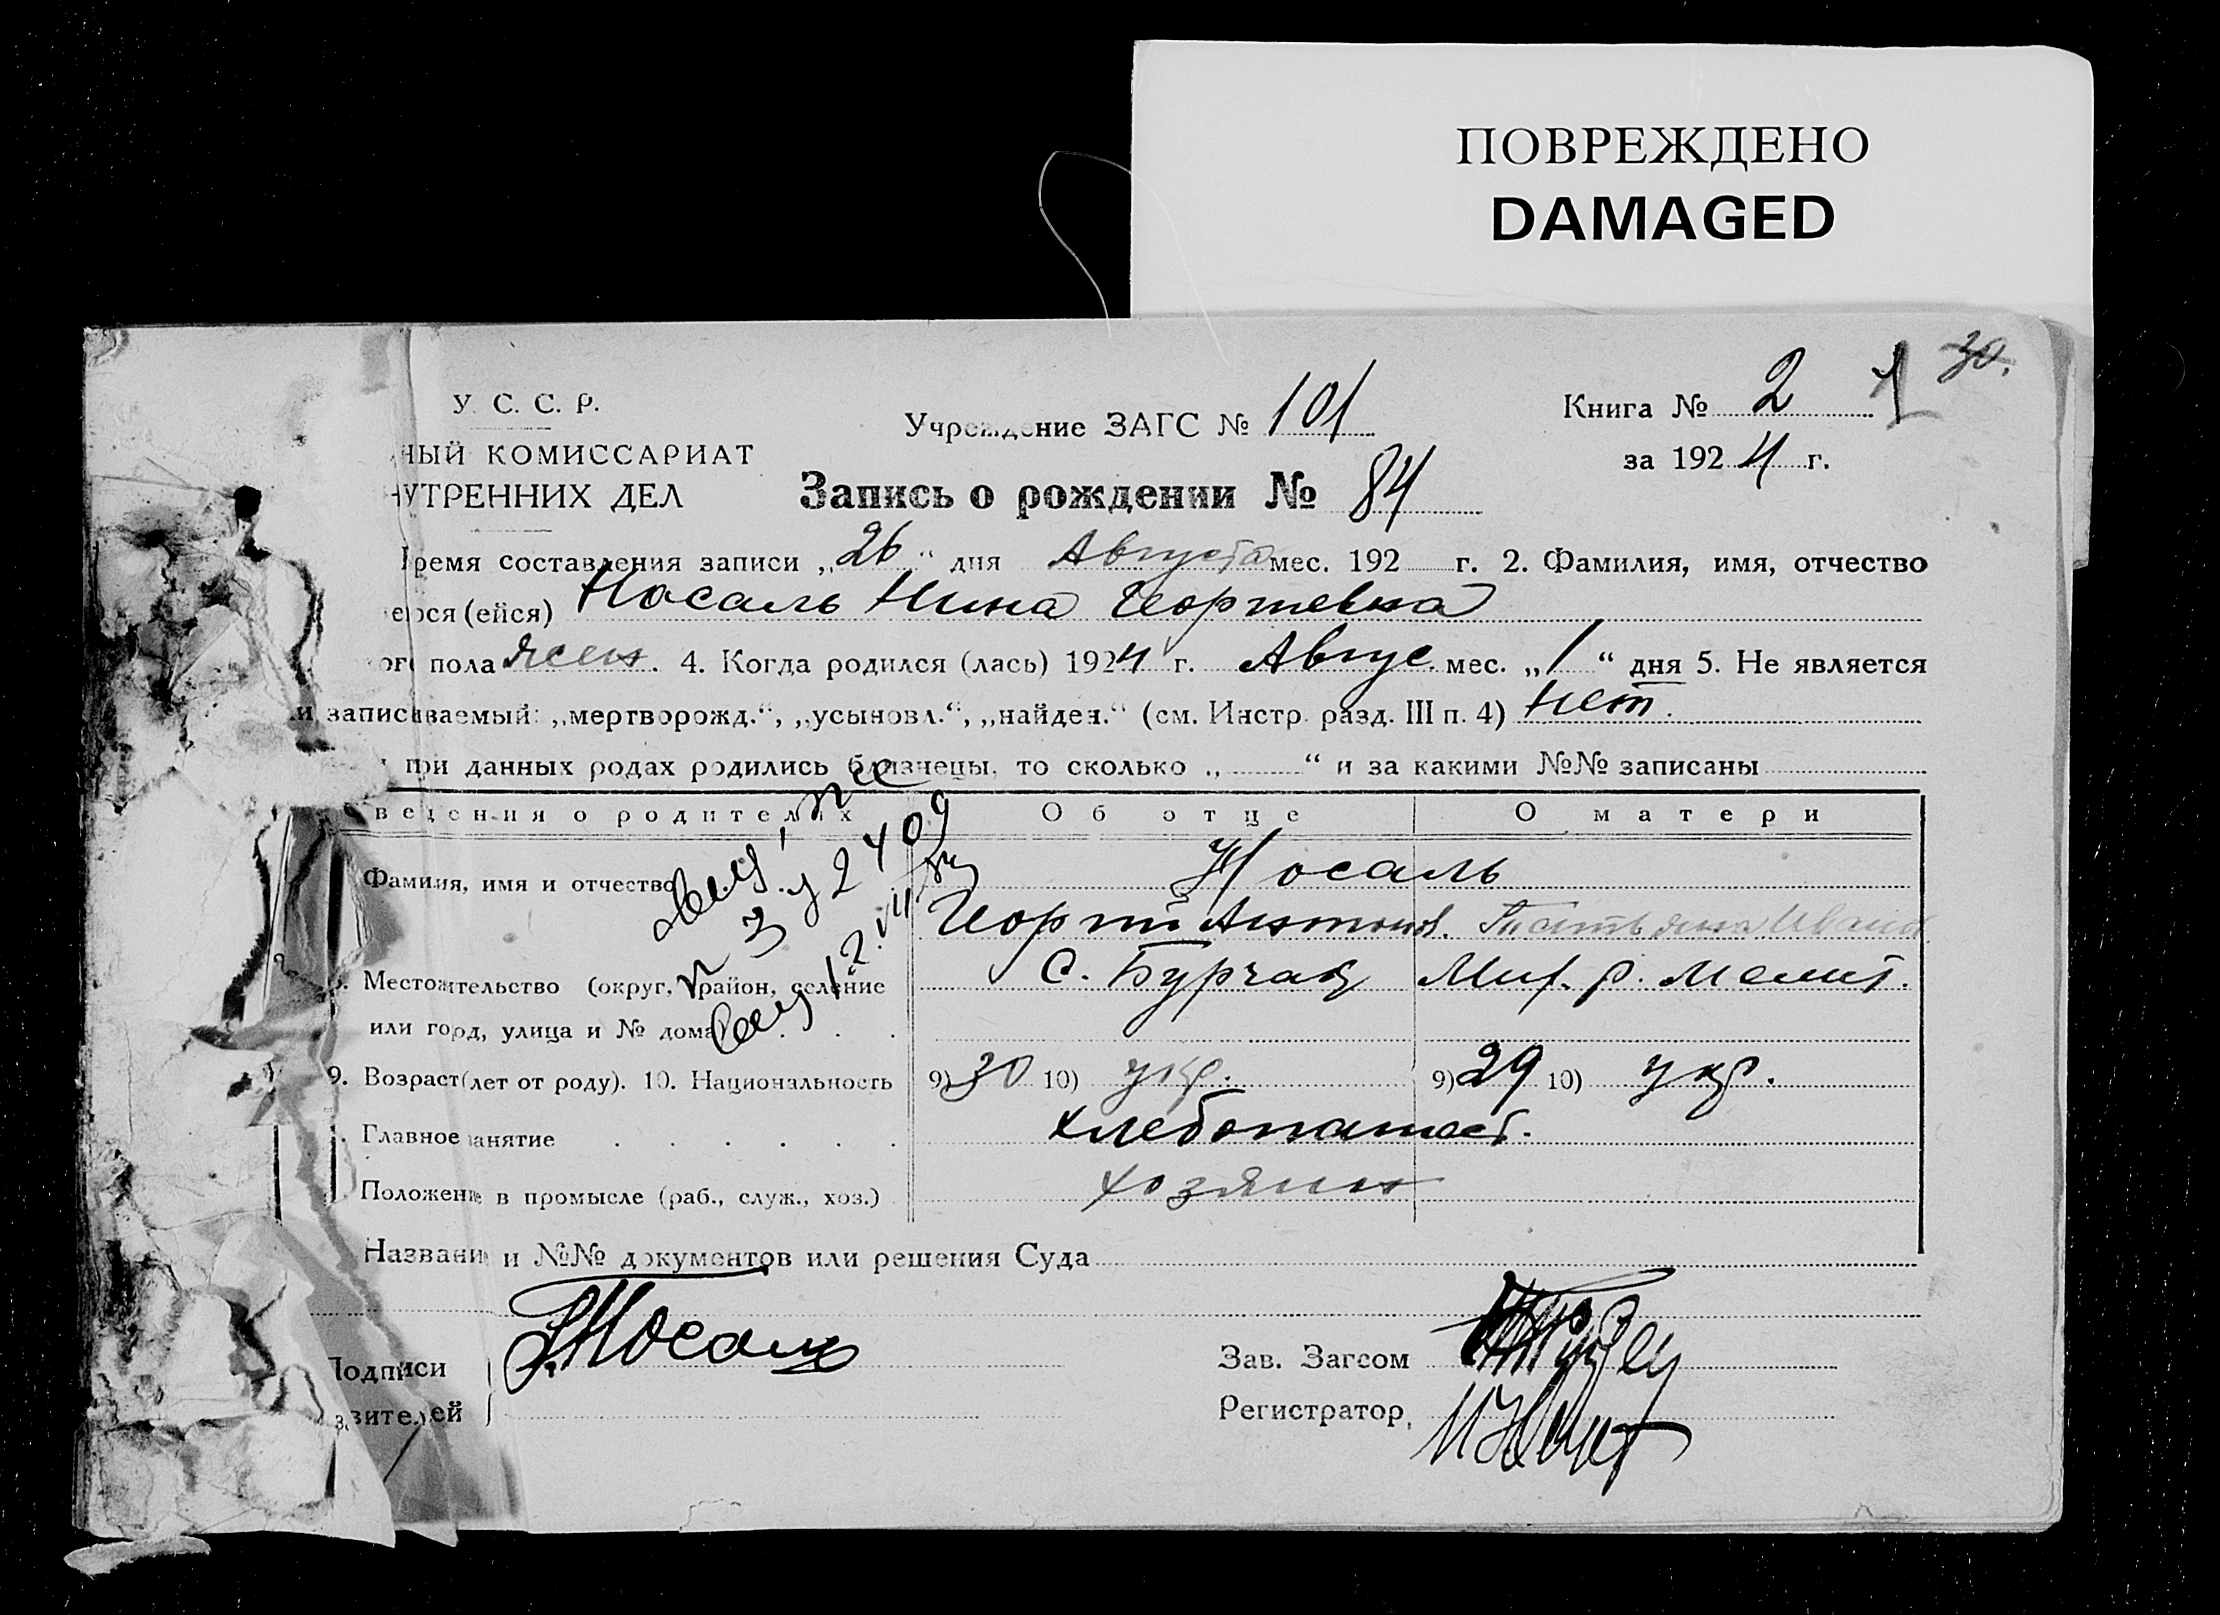 ПОВРЕЖДЕНО
DAMAGED
30.
У. С. С. Р.
Учреждение ЗАГС № 101
Книга № 2
НЫЙ КОМИССАРИАТ
за 1924 г.
НУТРЕННИХ ДЕЛ
Запись о рождении № 84
ремя составления записи „26“ дня Августа мес. 192 г. 2. Фамилия, имя, отчество
егося (ейся) Носаль Нина Георгиевна
ого пола жен. 4. Когда родился (лась) 1924 г. Авгус. мес. „1“ дня 5. Не является
и записываемый: „мертворожд.“, „усыновл.“, „найден.“ (см. Инстр. разд. III п. 4) нет.
при данных родах родились близнецы, то сколько „ “ и за какими №№ записаны
ведения о родителях Об отце О матери
Фамилия, имя и отчество Носаль
Георгий Антонов. Татьяна Иван
Местожительство (округ, район, селение С. Бурчак Мих. р. Мелит.
или горд, улица и № дома
9. Возраст (лет от роду). 10. Национальность 9) 30 10) укр. 9) 29 10) укр.
Главное занятие хлебопашест.
Положение в промысле (раб., служ., хоз.) хозяин
Названи и №№ документов или решения Суда
Подписи Носаль Зав. Загсом
явителей Регистратор,